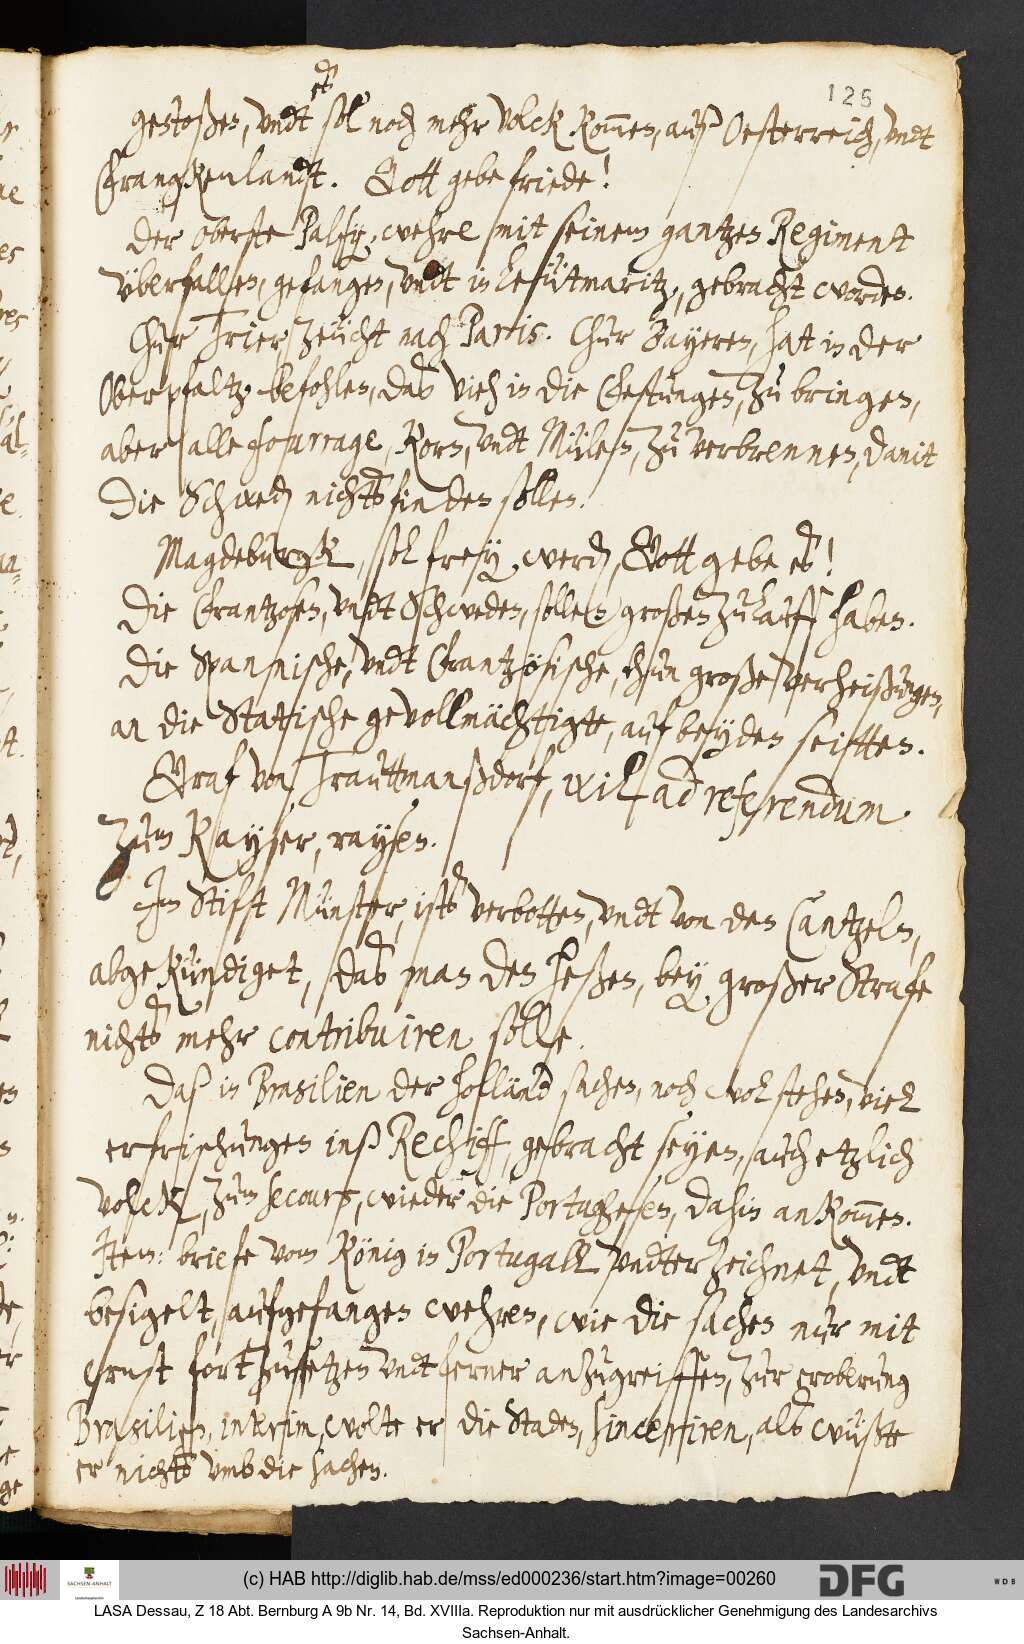 125
es
gestoßen, vndt sol noch mehr volck kommen, auß Oesterreich, vndt
Franckenlandt. Gott gebe friede!
Der oberste Palfy, wehre mit seinem gantzen Regiment
vberfallen, gefangen, vndt in Leütmaritz, gebracht worden.
Chur Trier, zeücht nach Paris. Chur Bayeren, hat in der
Oberpfaltz befohlen, das vieh in die Festungen, zu bringen,
aber alle fourrage, Korn, vndt Mülen, zu verbrennen, damit
die Schweden nichts finden sollen.
Magdeburgk, sol frey werden, Gott gebe es!
Die Frantzosen, vndt Schweden, sollen großen zulauff haben.
Die Spannische, vndt Frantzösische, thun große verheißungen,
an die Stattische gevollmächtigte, auf beyden seitten.
Graf von Trauttmanßdorf, wil ad referendum
zum Kayser, raysen.
Im Stifft Münster, ists verbotten, vndt von den Cantzeln,
abgekündiget, das man den Heßen, bey großer Strafe
nichts mehr contribuiren solle.
Daß in Brasilien der Holländ sachen, noch wol stehen, viel
erfrischungen inß Rechiff, gebracht seyen, auch etzlich
volck, zum secourß, wieder die Portughesen, dahin ankommen.
Item: briefe vom König in Portugall vndterzeichnet, vndt
besigelt, aufgefangen wehren, wie die sachen nur mit
ernst fortzusetzen vndt ferner anzugreiffen, zur eroberung
Brasilien, interim, wolte er die Staden, sincerriren, als wüßte
er nichts vmb die sachen.
(c) HAB http://diglib.hab.de/mss/ed000236/start.htm?image=00260
SACHSEN-ANHALT
DFG
WDB
LASA Dessau, Z 18 Abt. Bernburg A 9b Nr. 14, Bd. XVIIIa. Reproduktion nur mit ausdrücklicher Genehmigung des Landesarchivs
Sachsen-Anhalt.